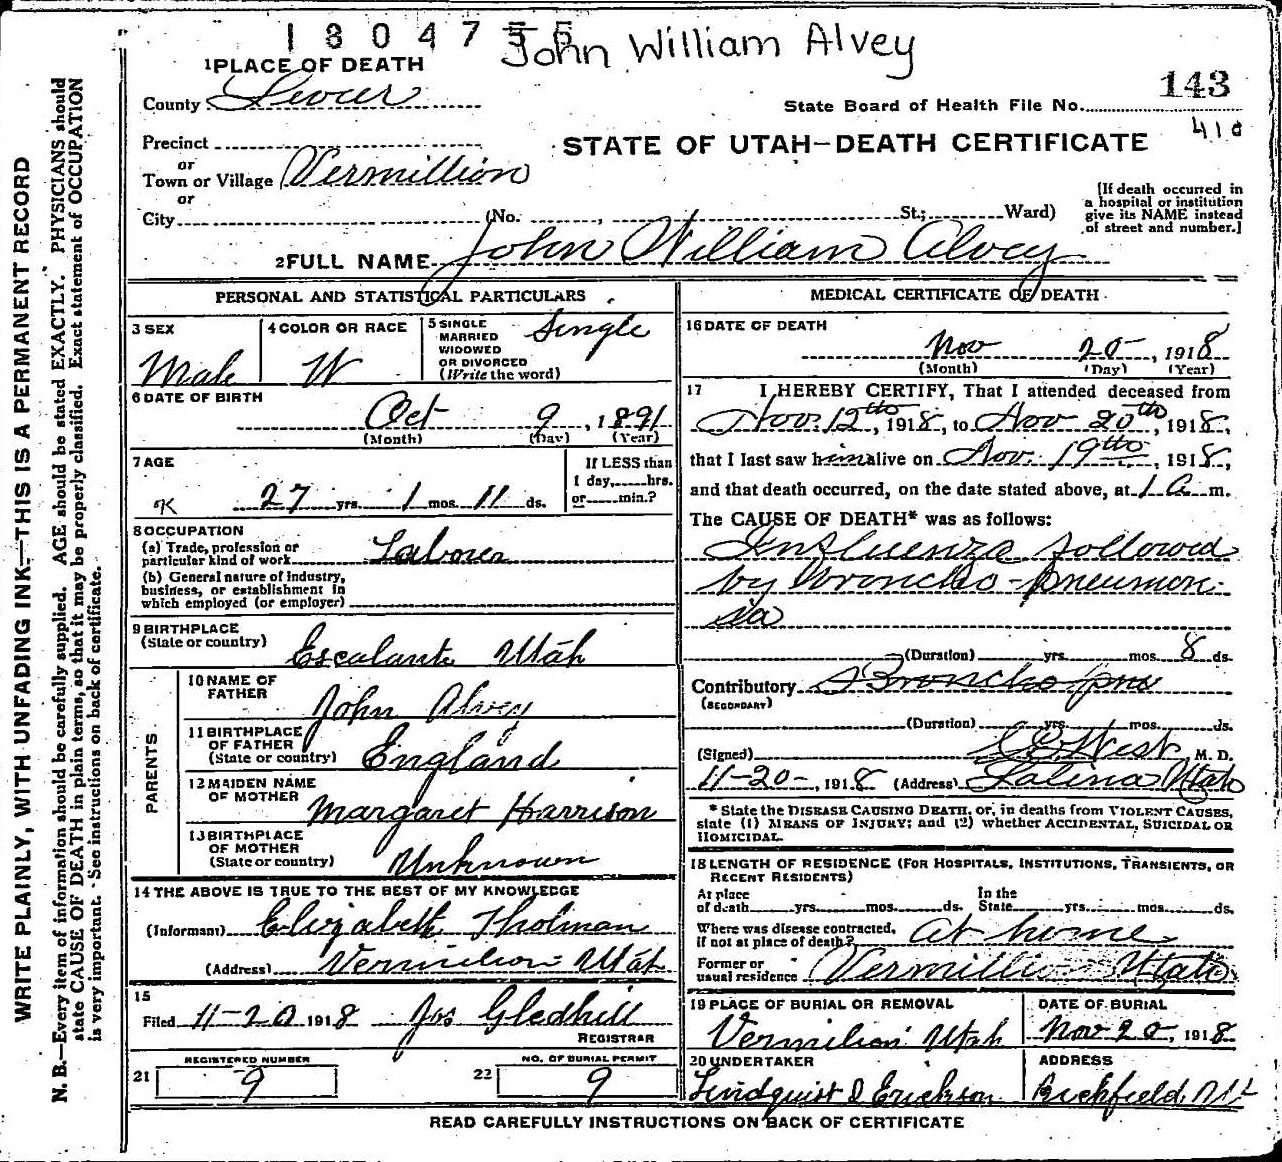 1304755
John William Alvey
1 PLACE OF DEATH
County Sevier
143
State Board of Health File No.
410
Precinct
or
Town or Village Vermillion
or
City (No. , St.; Ward)
STATE OF UTAH—DEATH CERTIFICATE
[If death occurred in
a hospital or institution
give its NAME instead
of street and number.]
2 FULL NAME John William Alvey
PERSONAL AND STATISTICAL PARTICULARS
3 SEX
Male
4 COLOR OR RACE
W
5 SINGLE
MARRIED
WIDOWED
OR DIVORCED
(Write the word)
Single
6 DATE OF BIRTH
Oct 9, 1891
(Month) (Day) (Year)
7 AGE
27 yrs. 1 mos. 11 ds.
If LESS than
1 day, hrs.
or min.?
8 OCCUPATION
(a) Trade, profession or
particular kind of work Laborer
(b) General nature of industry,
business, or establishment in
which employed (or employer)
9 BIRTHPLACE
(State or country) Escalante Utah
PARENTS
10 NAME OF
FATHER John Alvey
11 BIRTHPLACE
OF FATHER
(State or country) England
12 MAIDEN NAME
OF MOTHER Margaret Harrison
13 BIRTHPLACE
OF MOTHER
(State or country) Unknown
14 THE ABOVE IS TRUE TO THE BEST OF MY KNOWLEDGE
(Informant) Elizabeth Tholman
(Address) Vermilion Utah
15
Filed 11-20 1918 Jos Gledhill
REGISTRAR
REGISTERED NUMBER
21 9
NO. OF BURIAL PERMIT
22 9
MEDICAL CERTIFICATE OF DEATH
16 DATE OF DEATH
Nov 20, 1918
(Month) (Day) (Year)
17 I HEREBY CERTIFY, That I attended deceased from
Nov. 12th, 1918, to Nov 20th, 1918,
that I last saw him alive on Nov. 19th, 1918,
and that death occurred, on the date stated above, at 1 a m.
The CAUSE OF DEATH* was as follows:
Influenza followed
by broncho-pneumon-
ia
(Duration) yrs. mos. 8 ds.
Contributory Broncho pneu
(SECONDARY)
(Duration) yrs. mos. ds.
(Signed) West M. D.
11-20-, 1918 (Address) Salina Utah
* State the DISEASE CAUSING DEATH, or, in deaths from VIOLENT CAUSES,
state (1) MEANS OF INJURY; and (2) whether ACCIDENTAL, SUICIDAL OR
HOMICIDAL.
18 LENGTH OF RESIDENCE (FOR HOSPITALS, INSTITUTIONS, TRANSIENTS, OR
RECENT RESIDENTS)
At place
of death yrs. mos. ds.
In the
State yrs. mos. ds.
Where was disease contracted,
if not at place of death? At home
Former or
usual residence Vermillion Utah
19 PLACE OF BURIAL OR REMOVAL
Vermilion Utah
DATE OF BURIAL
Nov 20, 1918
20 UNDERTAKER
Lindquist & Erickson
ADDRESS
Richfield, Ut
READ CAREFULLY INSTRUCTIONS ON BACK OF CERTIFICATE
WRITE PLAINLY, WITH UNFADING INK—THIS IS A PERMANENT RECORD
N. B.—Every item of information should be carefully supplied. AGE should be stated EXACTLY. PHYSICIANS should
state CAUSE OF DEATH in plain terms, so that it may be properly classified. Exact statement of OCCUPATION
is very important. See instructions on back of certificate.